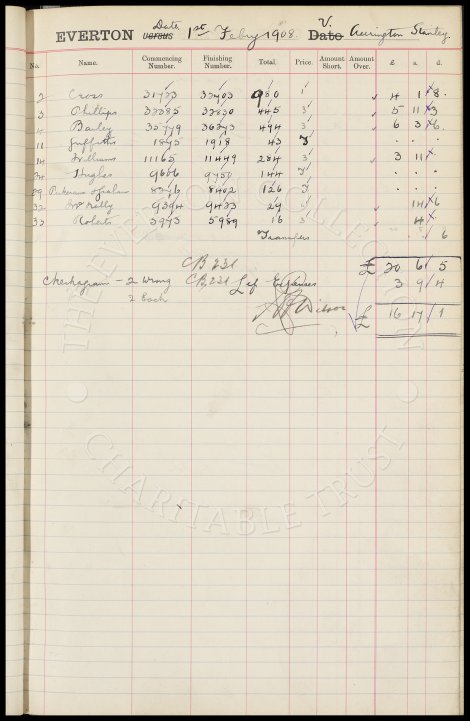 EVERTON Date versus 1st Feby 1908. V. Date Accrington Stanley.
No. Name. Commencing Number. Finishing Number. Total. Price. Amount Short. Amount Over. £ s. d.
2 Cross 900 4 1 8
3 Phillips 33385 33830 445 3 5 11 3
4 Bailey 35779 36273 494 3 6 3 6
11 Griffiths 1875 1918 43 3
14 Williams 11165 11449 284 3 3 11
Hughes 144 3
29 8402 126 3
32 9394 9423 29 14 6
33 Roberts 3973 3989 16 3 4
Transfers 6
CB 231 £ 20 6 5
2 Wrong CB 231 Less Expenses 3 9 4
2 Each
Wilson £ 16 17 1
THE EVERTON COLLECTION
CHARITABLE TRUST